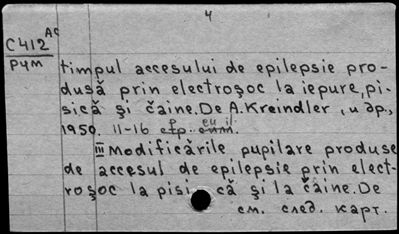 4
С412 АС
рум
timpul accesului de epilepsie pro-
dusă prin electroşoc la iepure, pi-
sică şi câine. De A. Kreindler, и др.,
1950. 11-16 стр. с илл.
III Modificările pupilare produse
de accesul de epilepsie prin elect-
roşoc la pisi că şi la câine. De
см. след. карт.